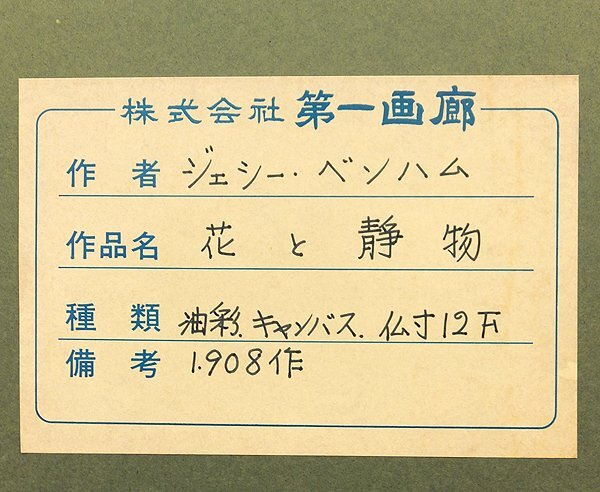 株式会社 第一画廊
作者 ジェシー・ベンハム
作品名 花と静物
種類 油彩.キャンバス.仏寸12F
備考 1.908作